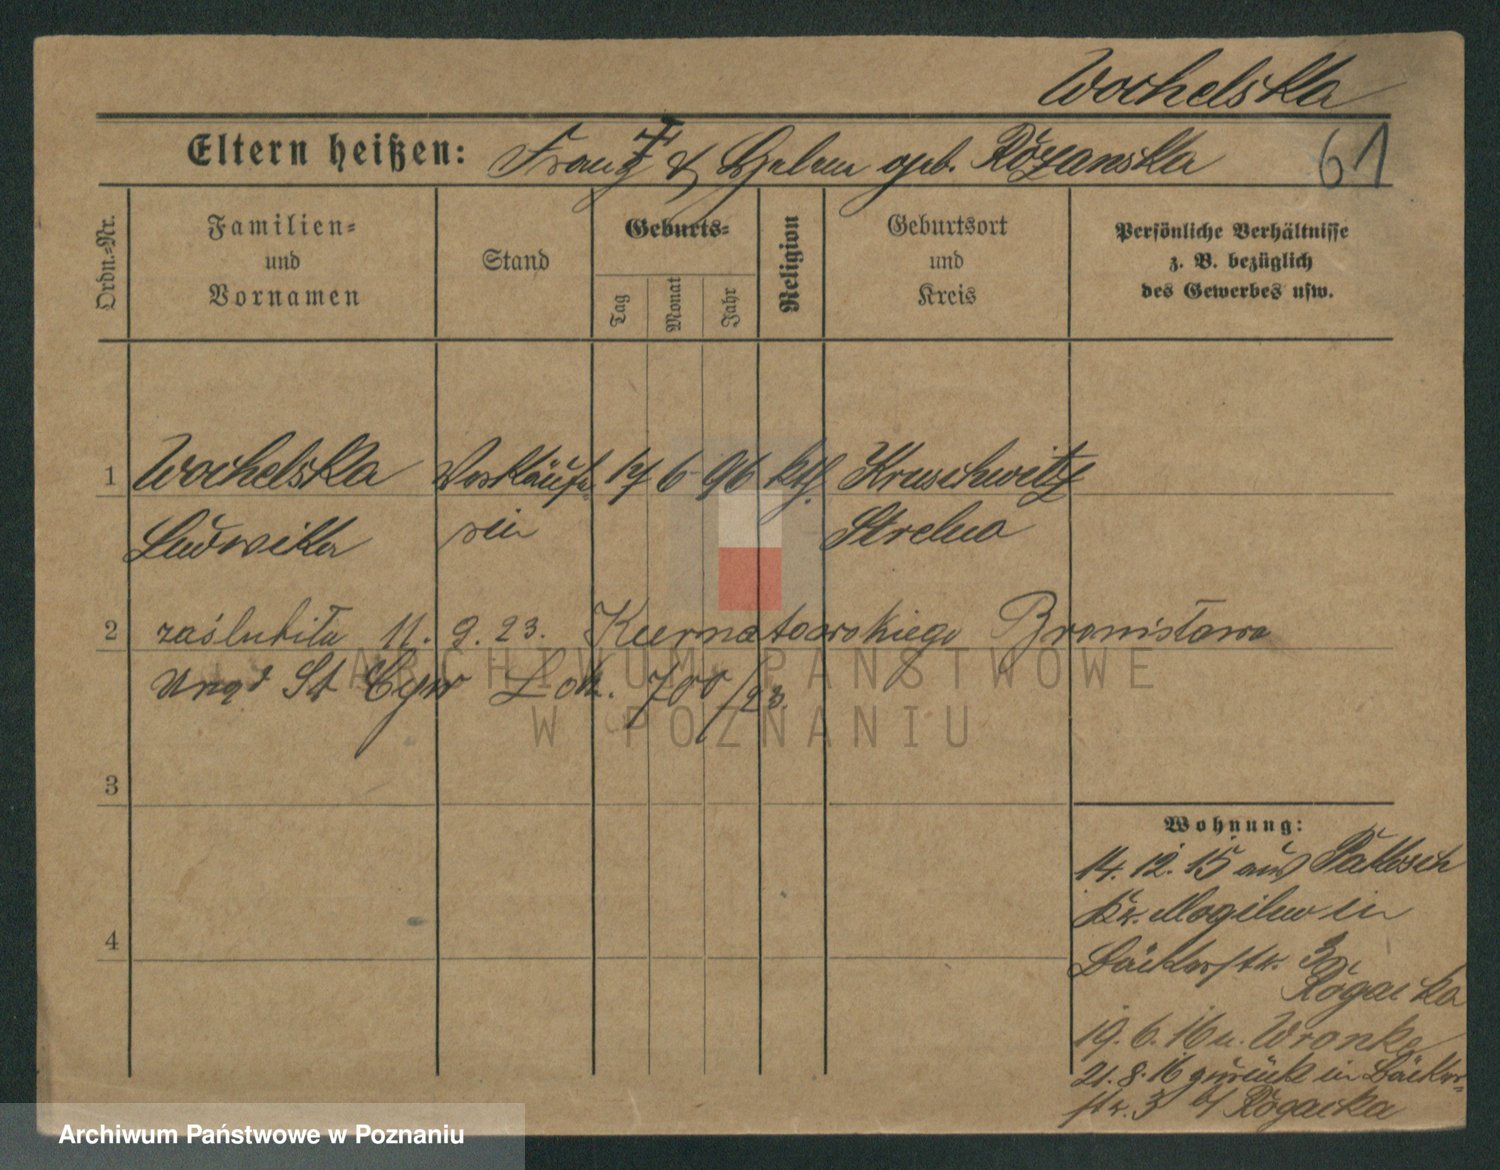 Wochelska
Eltern heißen: Franz † & Helene geb. Rózanska
61
Ordn.-Nr.
Familien-
und
Vornamen
Stand
Geburts-
Tag
Monat
Jahr
Religion
Geburtsort
und
Kreis
Persönliche Verhältnisse
z. B. bezüglich
des Gewerbes usw.
1 Wochelska Verkäufe- 17 6 96 kth. Kruschwitz
Ludwika rin Strelno
2 zaślubiła 11. 9. 23. Kurnatowskiego Bronisława
Urząd St Cyw L dz. 700/23.
3
4
Wohnung:
14. 12. 15 aus Pakosch
Kr. Mogilno in
Bäckerstr. 3
Rogacka
19. 6. 16 n. Wronke
21. 8. 16 zurück in Bäcker-
str. 3 b/ Rogacka
ARCHIWUM PAŃSTWOWE
W POZNANIU
Archiwum Państwowe w Poznaniu